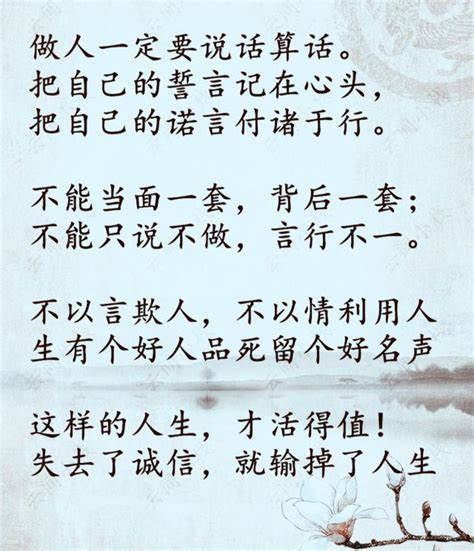 做人一定要说话算话。
把自己的誓言记在心头，
把自己的诺言付诸于行。
不能当面一套，背后一套；
不能只说不做，言行不一。
不以言欺人，不以情利用人
生有个好人品死留个好名声
这样的人生，才活得值！
失去了诚信，就输掉了人生